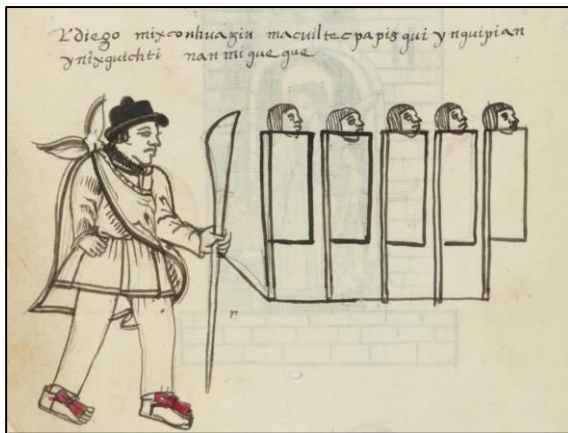 diego mixconhuazin macuiltecpapisqui ynquipian
ynixquichti nanmiqueque